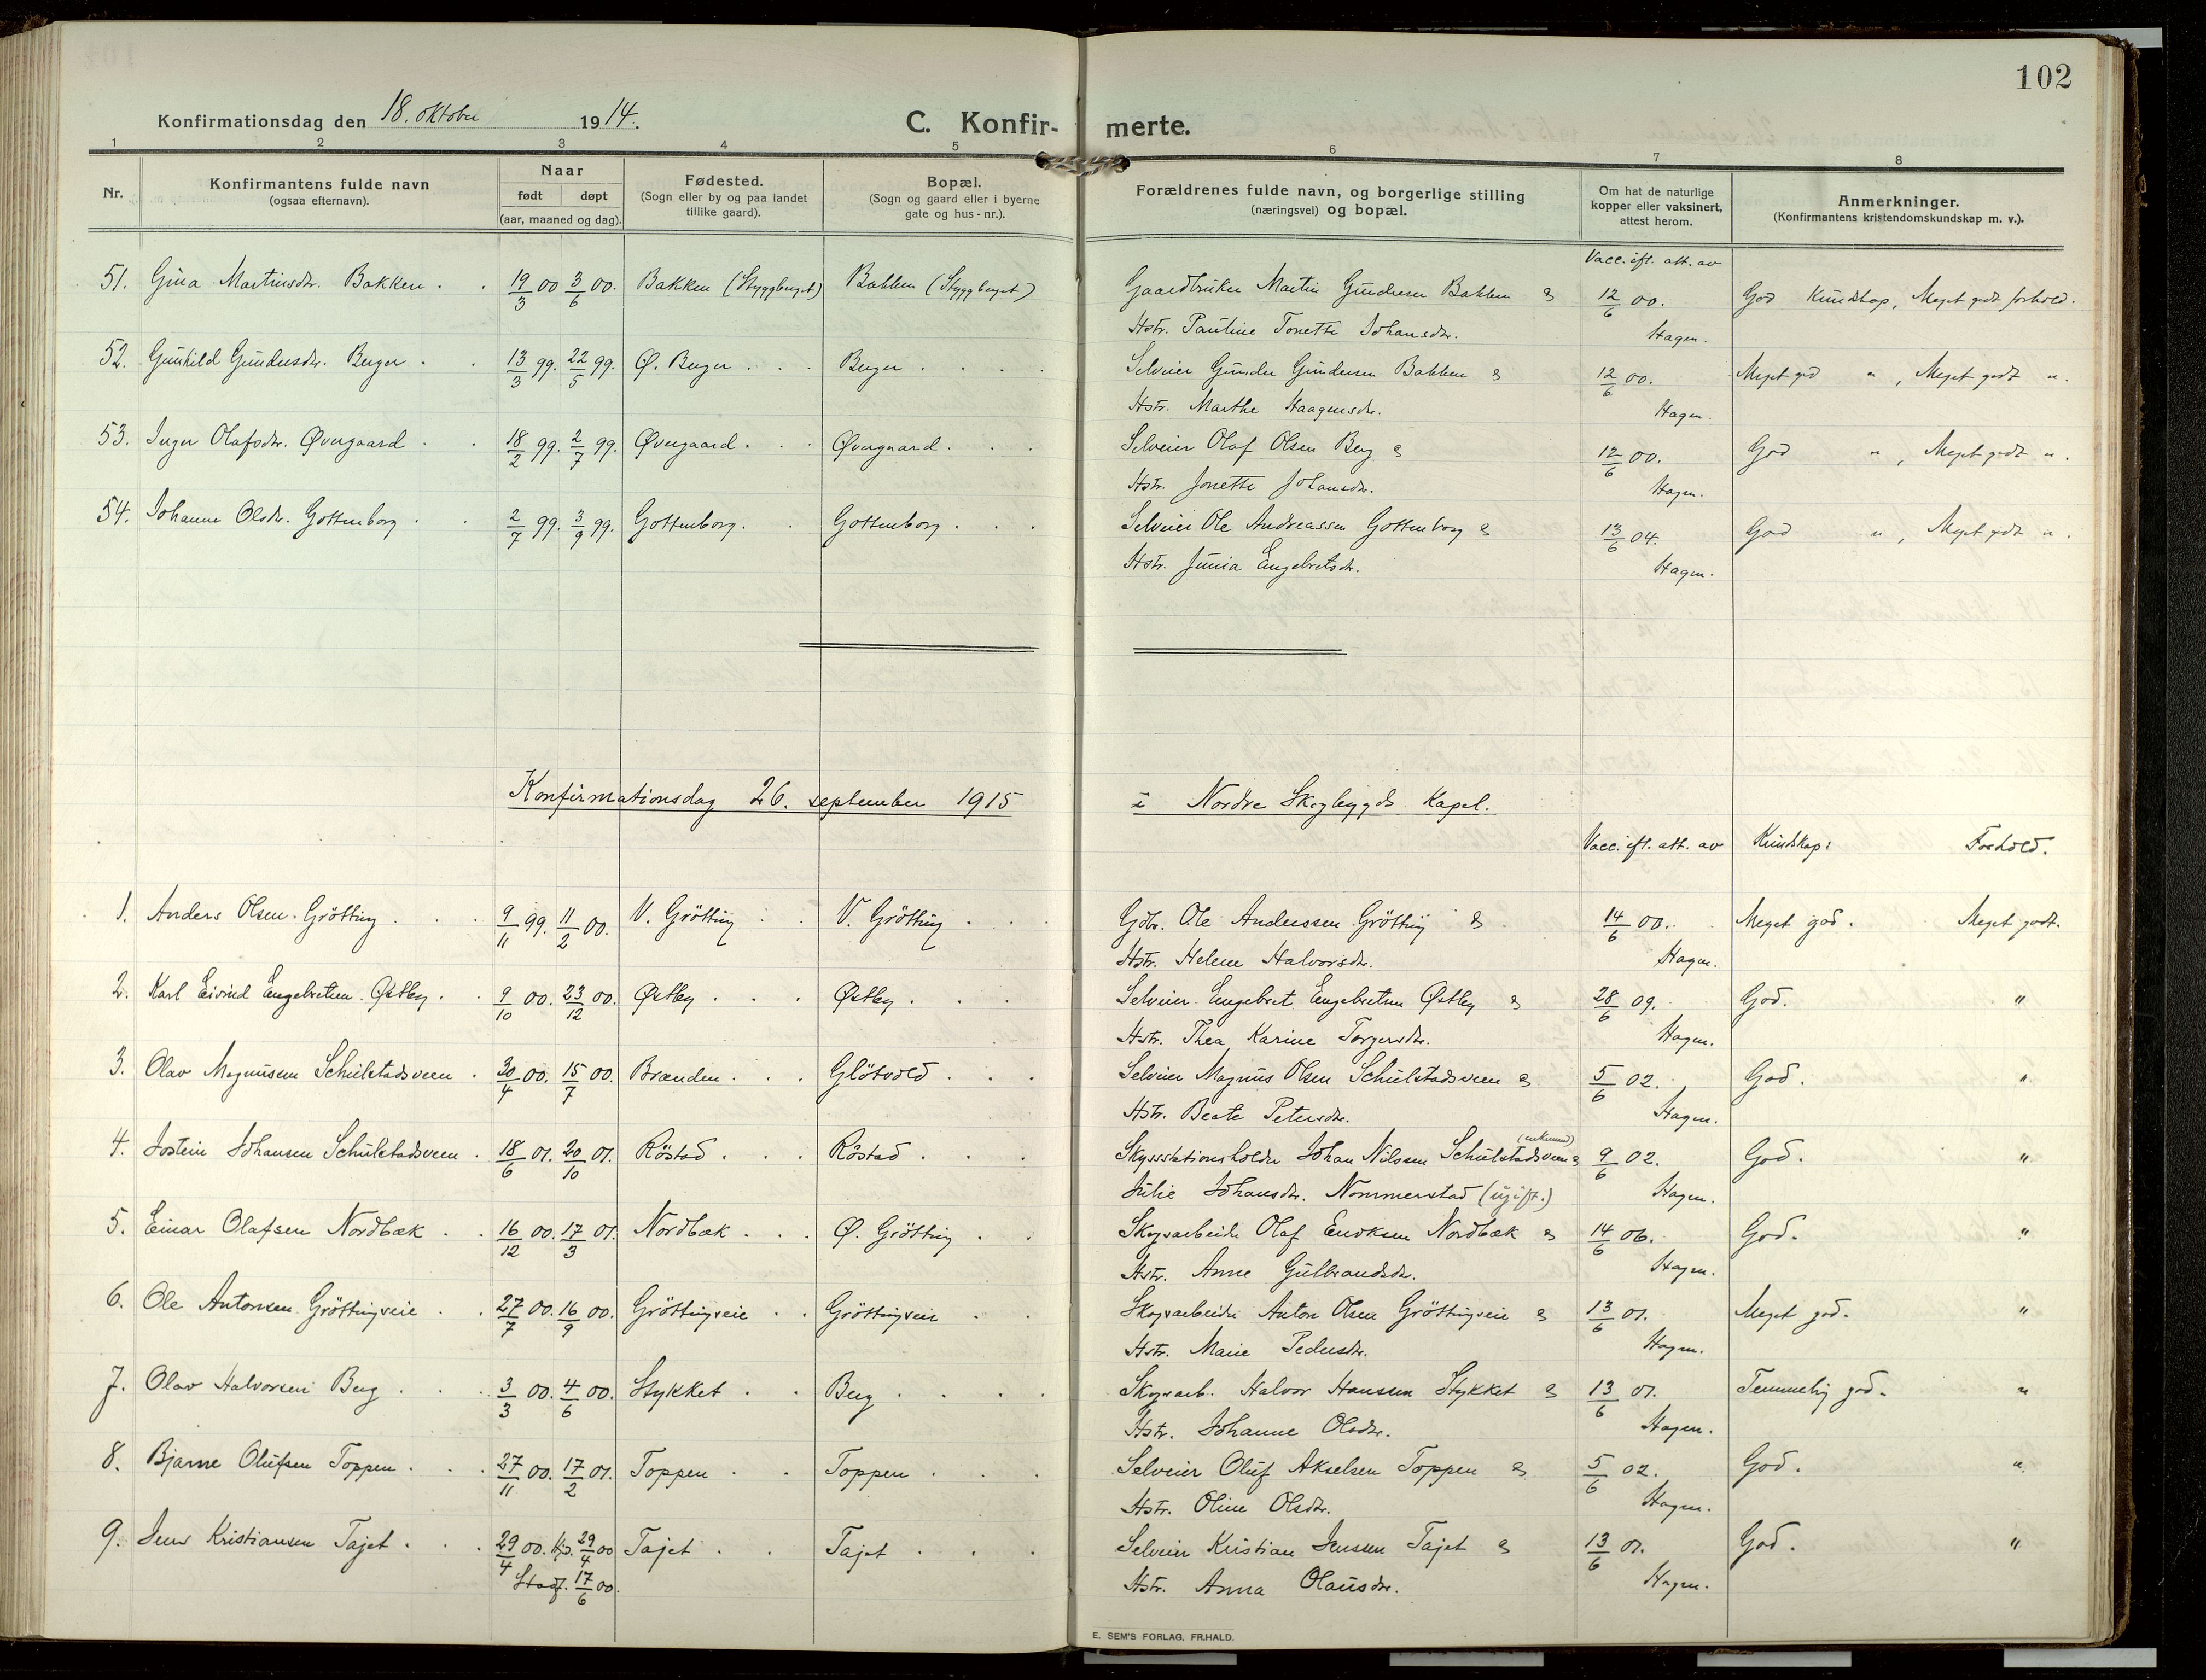 102
Konfirmationsdag den 18. oktober 1914.
C. Konfir- merte.
1 2 3 4 5 6 7 8
Nr.
Konfirmantens fulde navn
(ogsaa efternavn).
Naar
født døpt
(aar, maaned og dag).
Fødested.
(Sogn eller by og paa landet
tillike gaard).
Bopæl.
(Sogn og gaard eller i byerne
gate og hus-nr.).
Forældrenes fulde navn, og borgerlige stilling
(næringsvei) og bopæl.
Om hat de naturlige
kopper eller vaksinert,
attest herom.
Anmerkninger.
(Konfirmantens kristendomskundskap m. v.).
Vacc. ift. att. av
51. Gina Martinsdtr. Bakken . . 19/3 00 3/6 00. Bakken (Styggberget) Bakken (Styggberget) Gaardbruker Martin Gundersen Bakken & 12/6 00. God Kundskap, Meget godt forhold.
Hstr. Pauline Tonette Johansdtr. Hagen.
52. Gunhild Gundersdtr. Berger . . 13/3 99. 22/5 99. Ø. Berger . . . Berger . . . . Selveier Gunder Gundersen Bakken & 12/6 00. Meget god " , Meget godt ".
Hstr. Marthe Haagensdtr. Hagen.
53. Inger Olafsdtr. Øvergaard . . 18/2 99. 2/7 99. Øvergaard . . . Øvergaard . . . Selveier Olaf Olsen Berg & 12/6 00. God " , Meget godt ".
Hstr. Jonette Johansdtr. Hagen.
54. Johanne Olsdtr. Gottenborg . . 2/7 99. 3/9 99. Gottenborg. . Gottenborg . . . Selveier Ole Andreassen Gottenborg & 13/6 04. God " , Meget godt ".
Hstr. Junia Engebretsdtr. Hagen.
Konfirmationsdag 26. september 1915 i Nordre Skogbygds Kapel.
Vacc. ift. att. av Kundskap: Forhold.
1. Anders Olsen Grötting . . . 9/11 99. 11/2 00. V. Grötting . . V. Grötting . . . Gdbr. Ole Anderssen Grötting & 14/6 00. Meget god. Meget godt.
Hstr. Helene Halvorsdtr. Hagen.
2. Karl Eivind Engebretsen Østby . . 9/10 00. 23/12 00. Østby . . . Østby . . . Selveier Engebret Engebretsen Østby & 28/6 09. God. "
Hstr. Thea Karine Torgersdtr. Hagen.
3. Olav Magnussen Schulstadsveen . 30/4 00. 15/7 00. Brænden . . . Glötvold . . . Selveier Magnus Olsen Schulstadsveen & 5/6 02. God. "
Hstr. Beate Petersdtr. Hagen.
4. Jostein Johansen Schulstadsveen . 18/6 01. 20/10 01. Röstad . . . Röstad . . . Skysstationsholder Johan Nilssen Schulstadsveen (enkemand) & 9/6 02. God. "
Julie Johansdtr. Nommerstad (ugift.) Hagen.
5. Einar Olafsen Nordbæk . . 16/12 00. 17/3 01. Nordbæk . . . Ø. Grötting . . Skogsarbeider Olaf Enoksen Nordbæk & 14/6 06. God. "
Hstr. Anne Gulbrandsdtr. Hagen.
6. Ole Antonsen Gröttingveie . . 27/7 00. 16/9 00. Gröttingveie . . Gröttingveie . . Skogsarbeider Anton Olsen Gröttingveie & 13/6 01. Meget god. "
Hstr. Marie Pedersdtr. Hagen.
7. Olav Halvorsen Berg . . . 3/3 00. 4/6 00. Stykket . . Berg . . . . Skogsarb. Halvor Hansen Stykket & 13/6 01. Temmelig god. "
Hstr. Johanne Olsdtr. Hagen.
8. Bjarne Olufsen Toppen . . . 27/11 00. 17/2 01. Toppen . . Toppen . . . Selveier Oluf Akselsen Toppen & 5/6 02. God. "
Hstr. Oline Olsdtr. Hagen.
9. Jens Kristiansen Tajet . . . 29/4 00. Hjd. 29/4 00 Tajet . . Tajet . . . Selveier Kristian Jenssen Tajet & 13/6 01. God. "
Stadf. 17/6 00. Hstr. Anna Olausdtr. Hagen.
E. SEM'S FORLAG, FR.HALD.